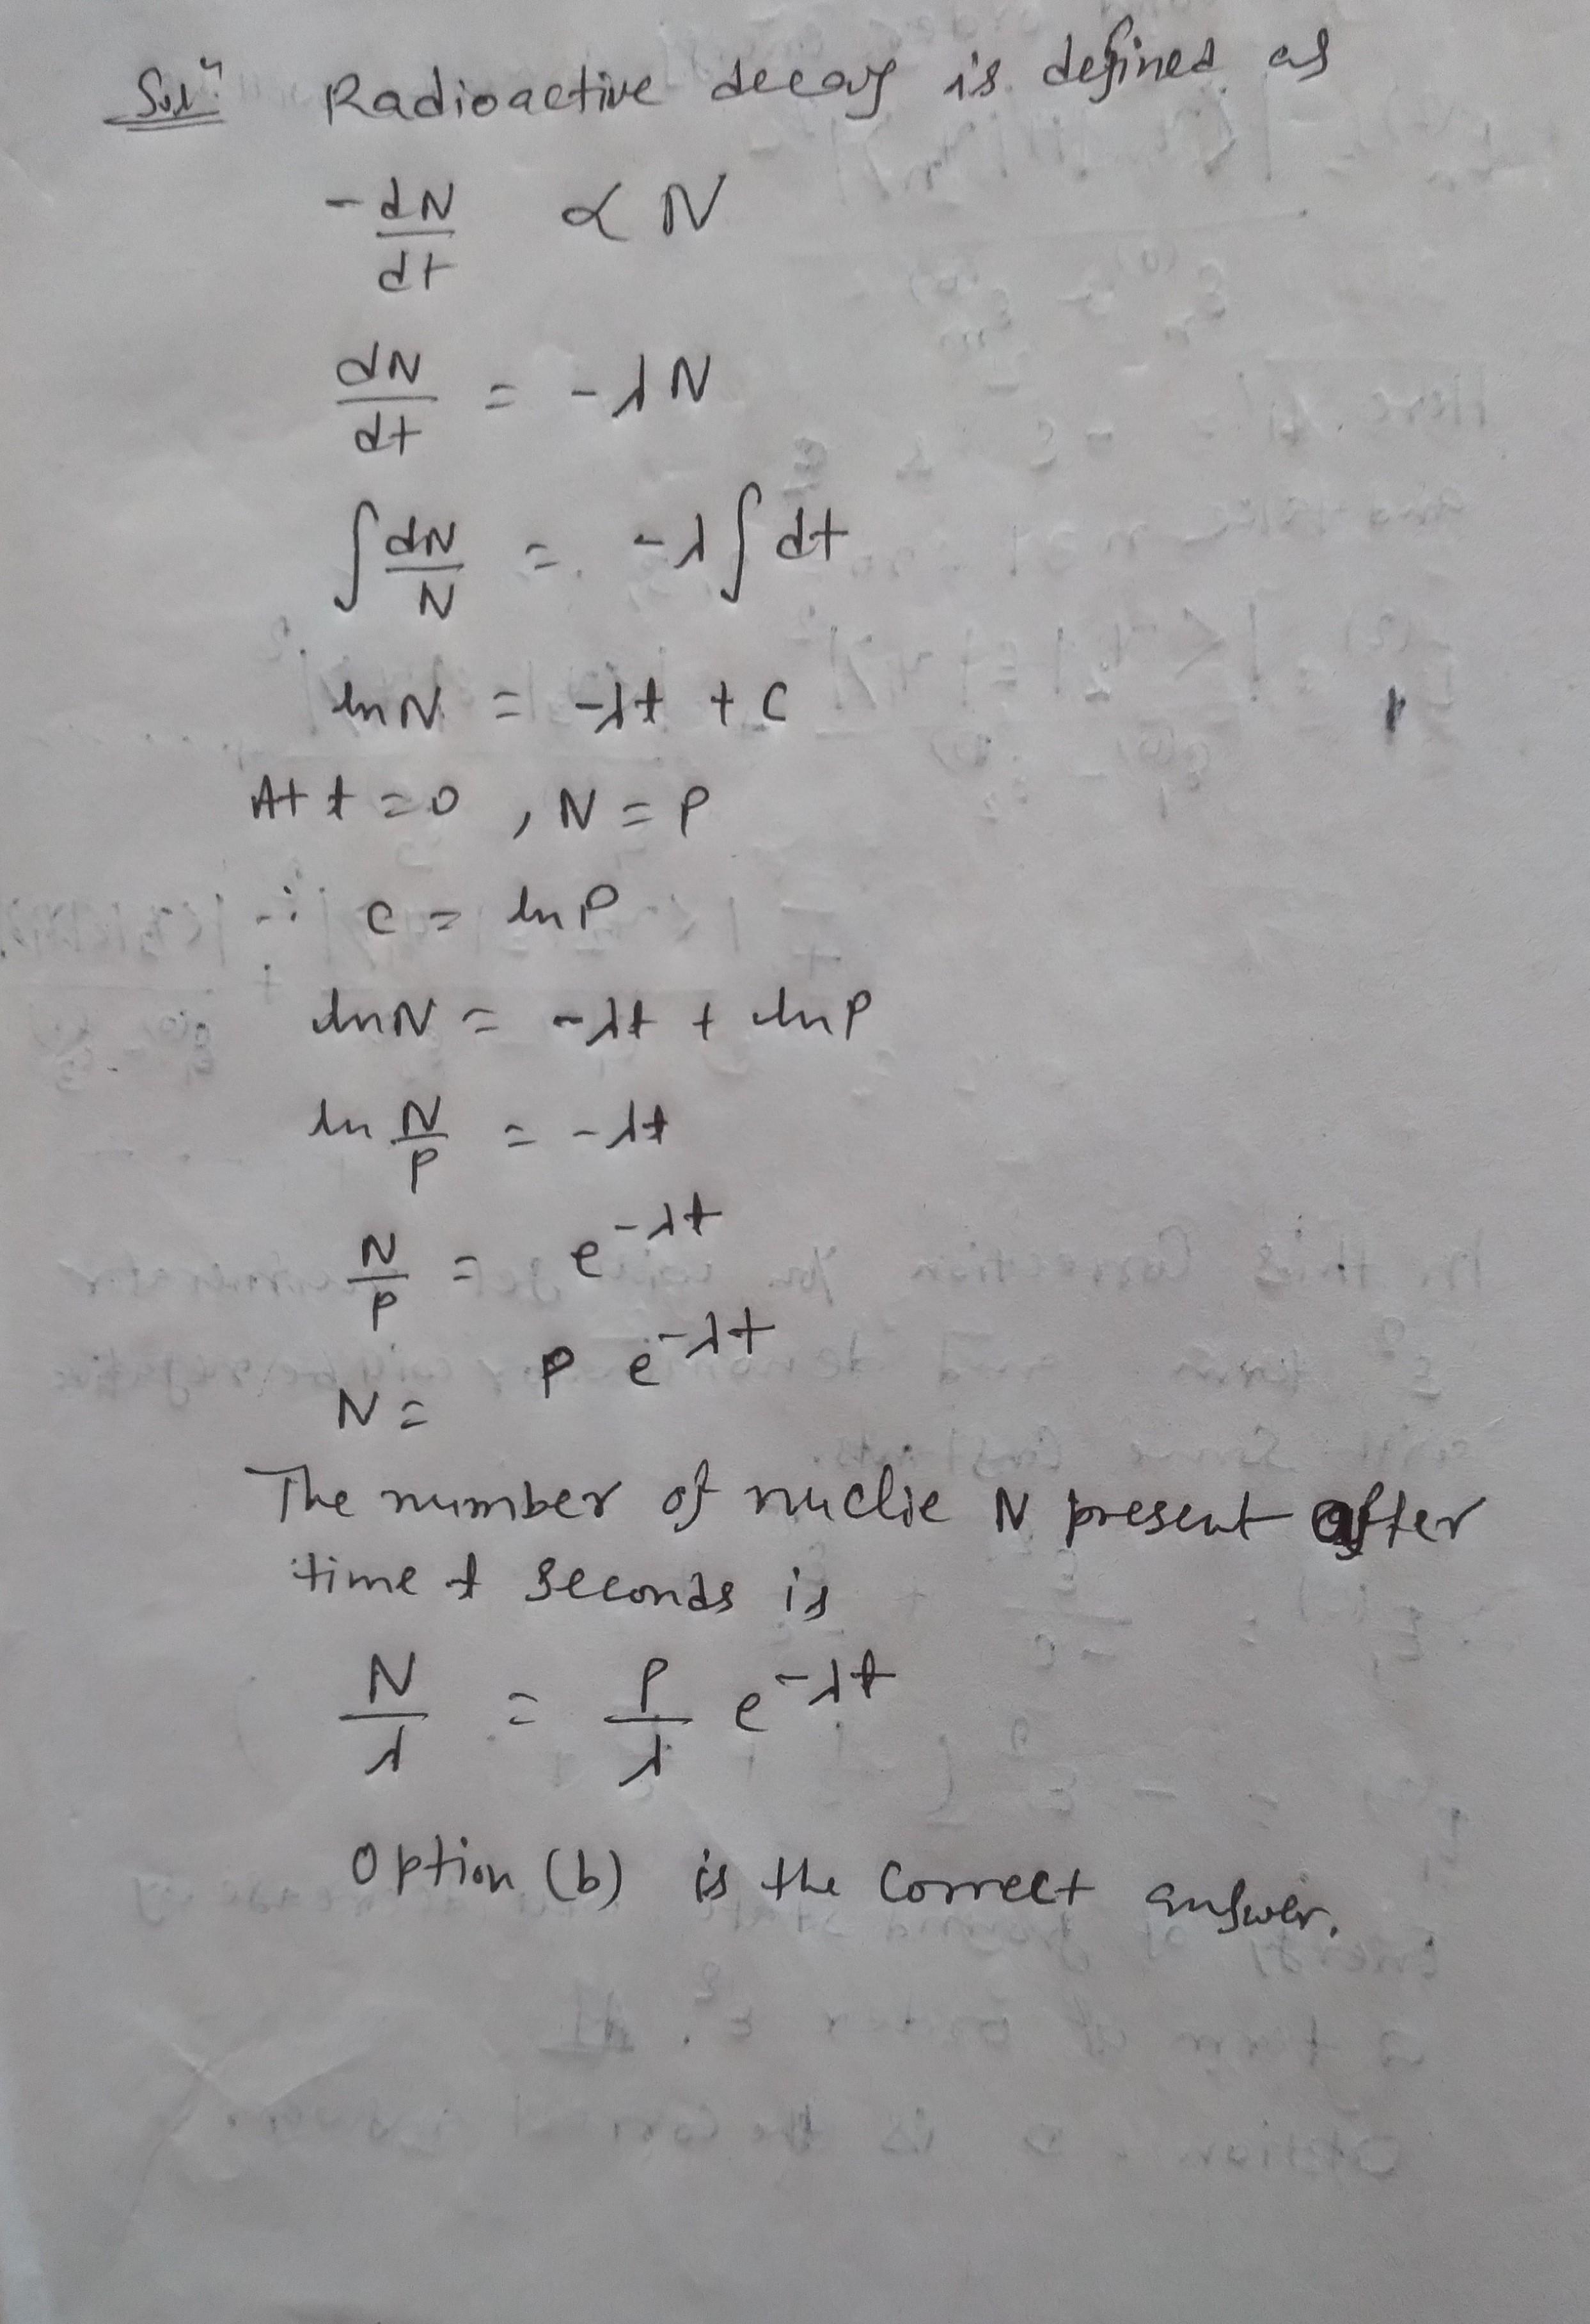 Solⁿ Radioactive decay is defined as
-dN/dt ∝ N
dN/dt = -λN
∫dN/N = -λ∫dt
lnN = -λt + c
At t=0, N=P
∴ c = lnP
lnN = -λt + lnP
ln N/P = -λt
N/P = e^-λt
N = P e^-λt
The number of nuclie N present after
time t seconds is
N/λ = P/λ e^-λt
Option (b) is the correct answer.